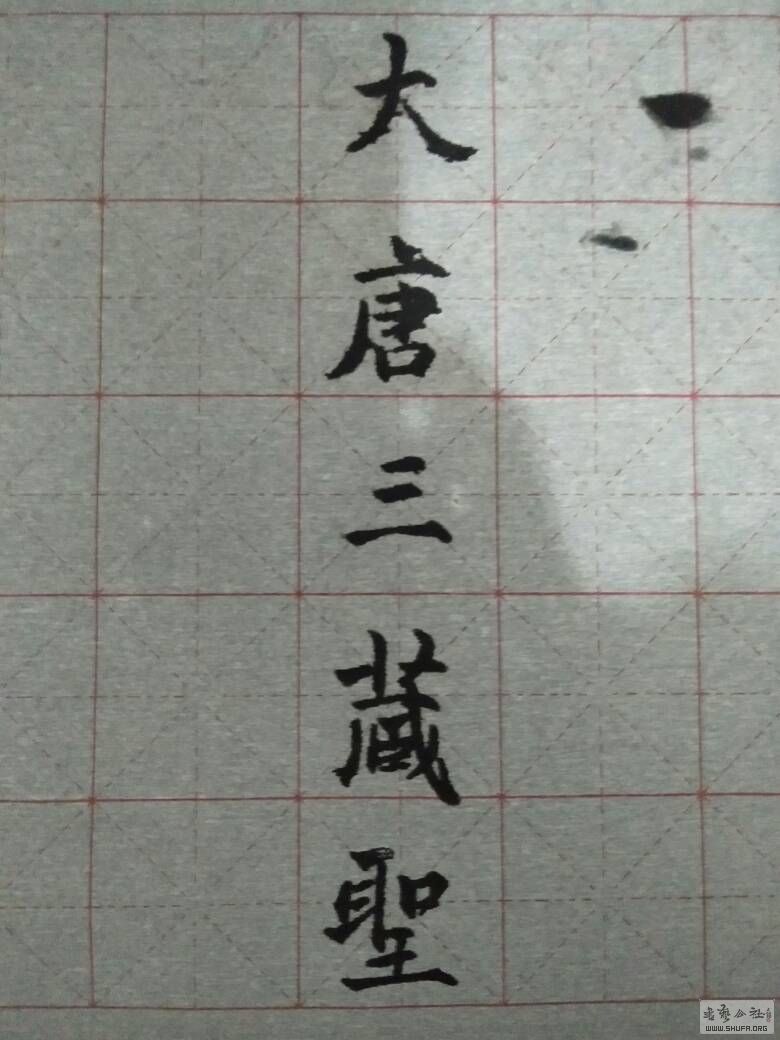 大唐三藏聖
书艺公社
WWW.SHUFA.ORG